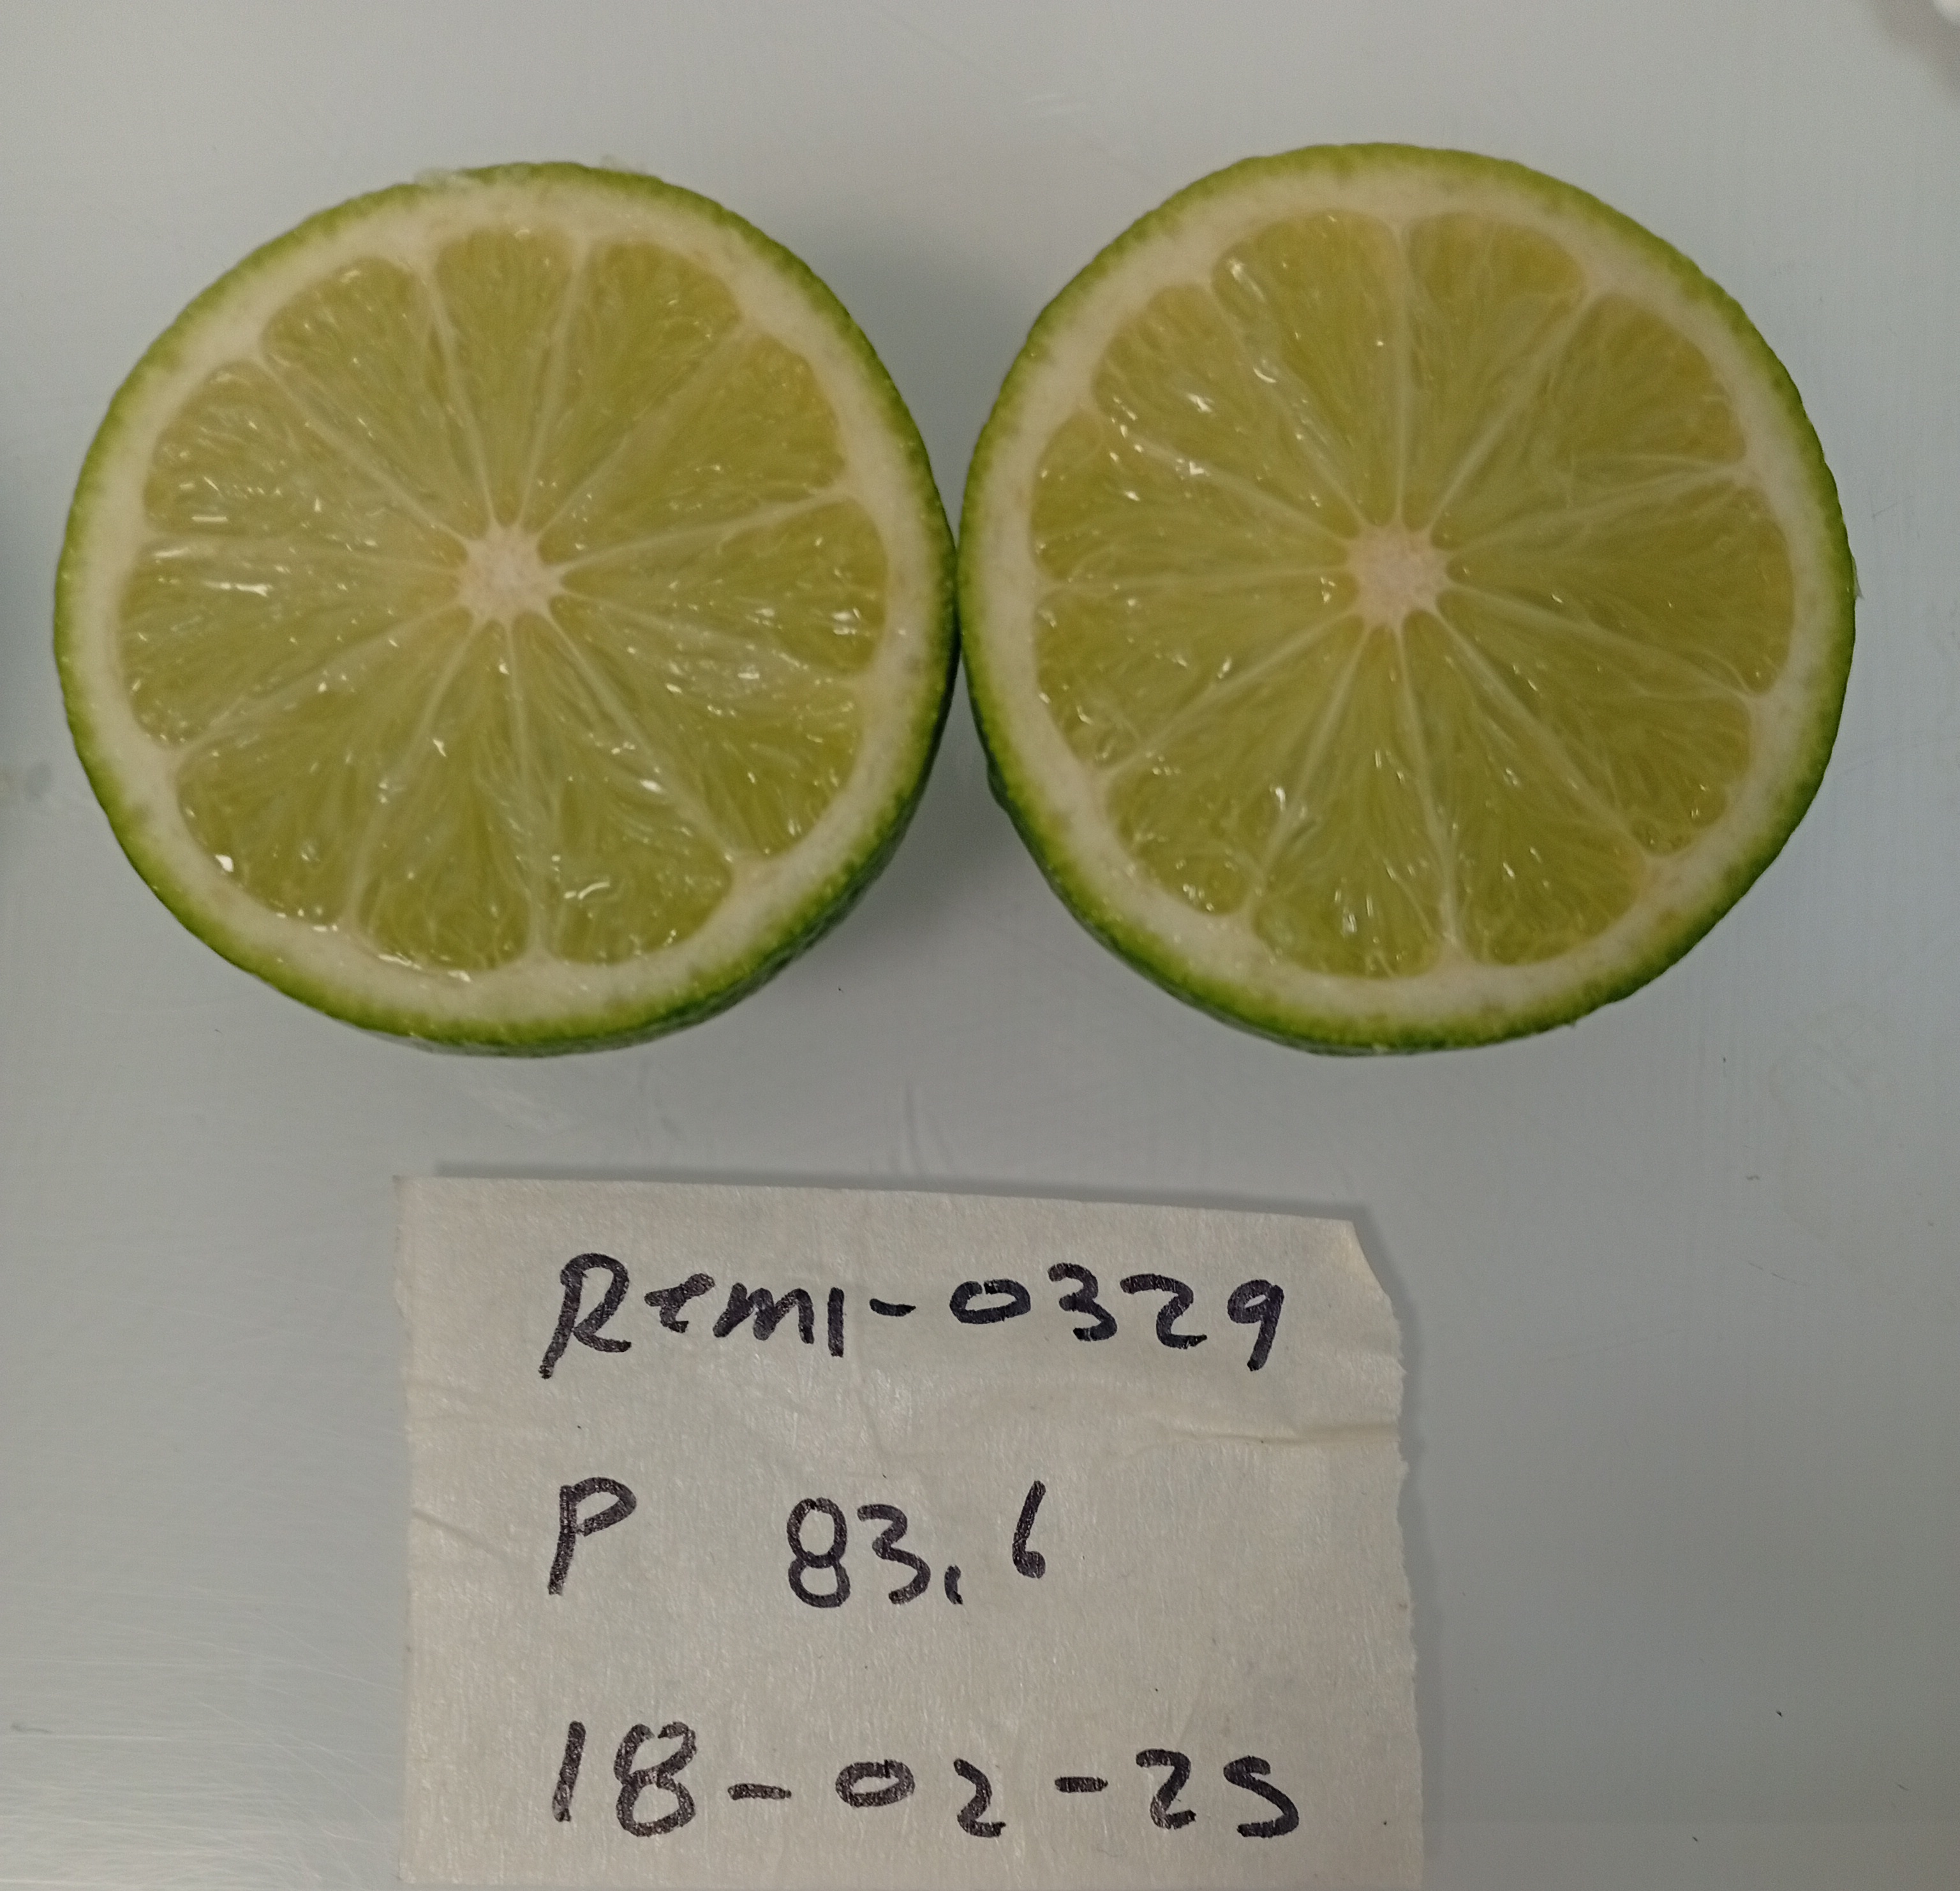 Remi-0329
P 83.6
18-02-25